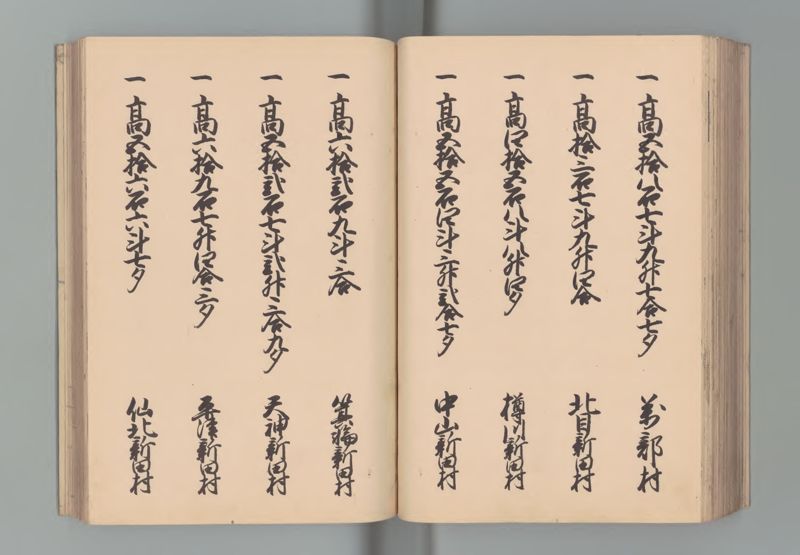 一 高五拾八石七斗九升七合七夕 万部村
一 高拾三石七斗九升四合 北目新田村
一 高四拾五石八斗八升四夕 樽川新田村
一 高五拾五石四斗三升弐合七夕 中山新田村
一 高六拾弐石九斗三合 箕輪新田村
一 高五拾弐石七斗弐升三合九夕 天神新田村
一 高六拾九石七升四合三夕 新田村
一 高五拾六石六斗七夕 仙北新田村